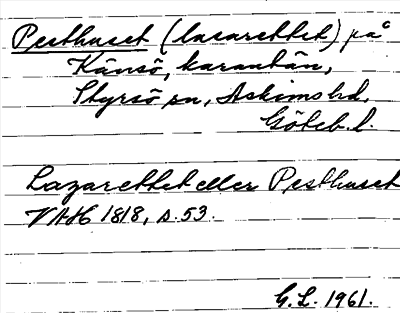 Pesthuset (lasarettet) på
Känsö, karantän,
Styrsö sn, Askims hd,
Göteb. l.
Lazarettet eller Pesthuset
VAH 1818, s. 53.
G.L. 1961.